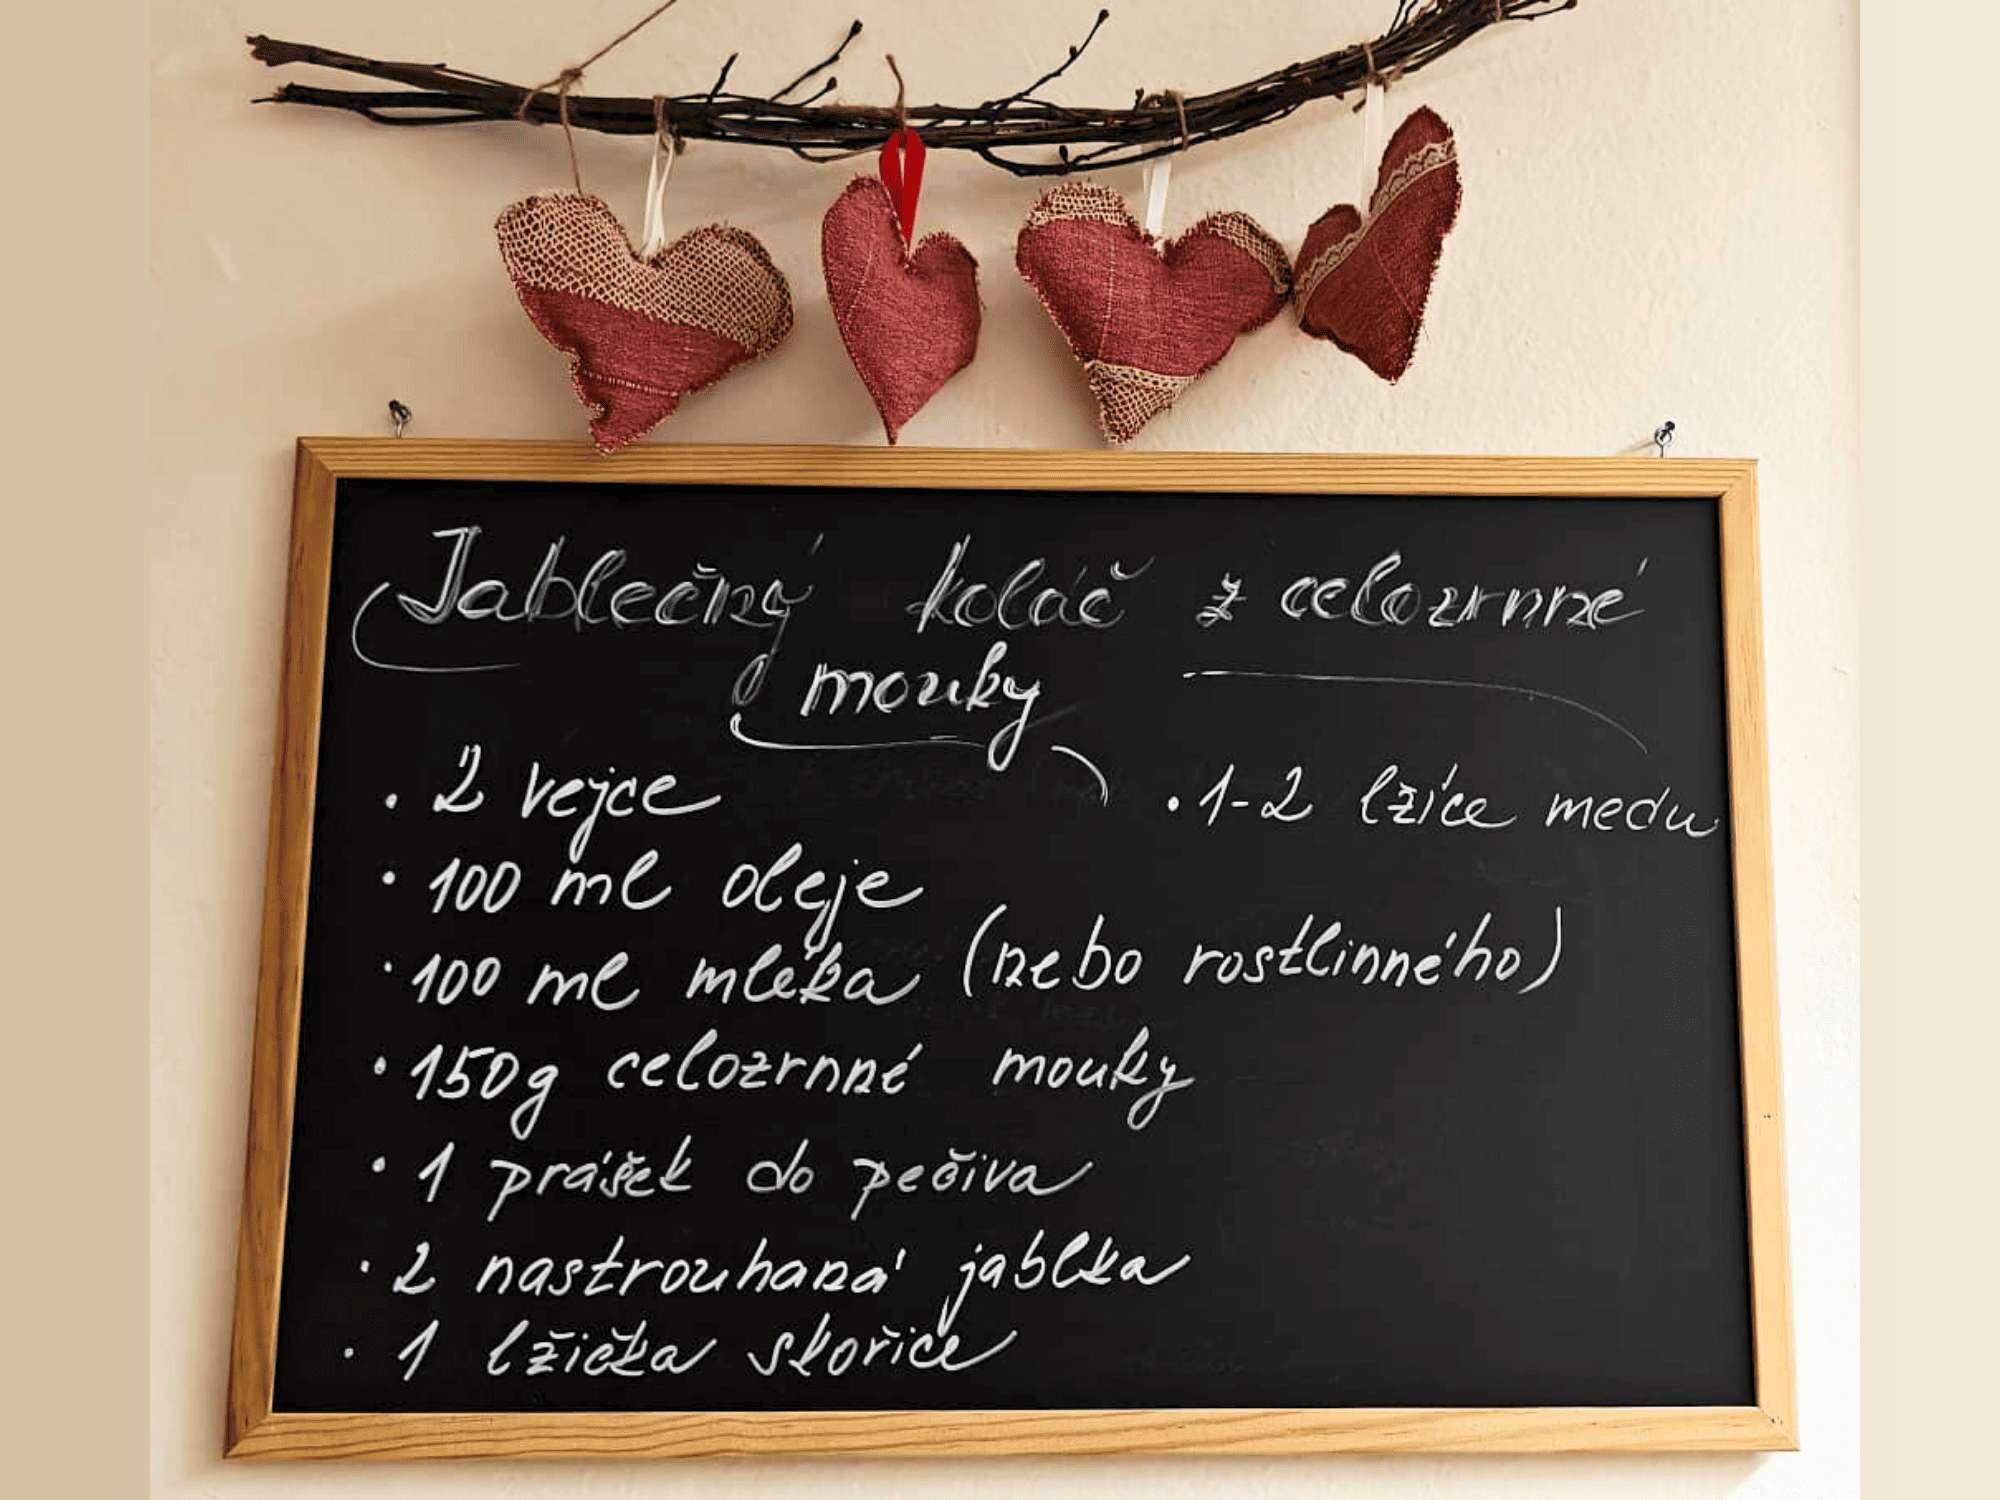 Jablečný koláč z celozrnné
mouky
• 2 vejce
• 1-2 lžíce medu
• 100 ml oleje
• 100 ml mléka (nebo rostlinného)
• 150g celozrnné mouky
• 1 prášek do pečiva
• 2 nastrouhaná jablka
• 1 lžička skořice